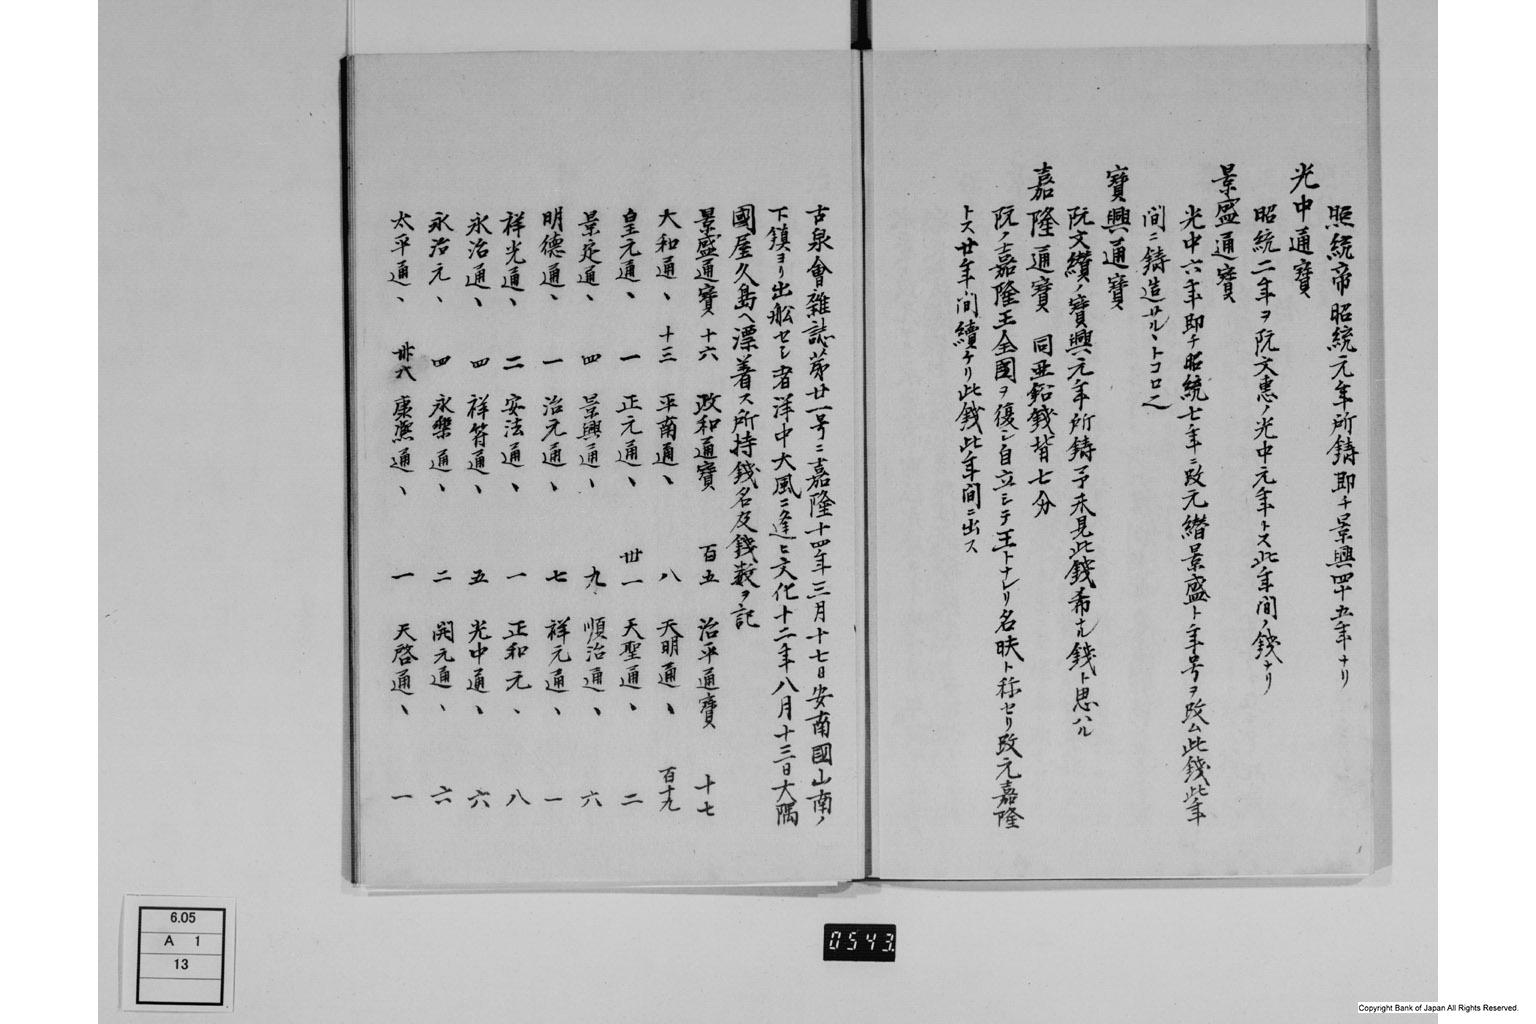 昭統帝昭統元年所鋳即チ景興四十五年ナリ
光中通寳
昭統二年ヲ阮文惠ノ光中元年トス此年間ノ錢ナリ
景盛通寳
光中六年即チ昭統七年ニ改元
景盛ト年号ヲ改ム此錢此年
間ニ鋳造サル、トコロ
寳興通寳
阮文纉ノ寳興元年所鋳予未見此錢希ナル錢ト思ハル
嘉隆通寳 同亜鉛錢背七分
阮ノ嘉隆王全国ヲ復シ自立シテ王トナレリ名ト称セリ改元嘉隆
トス廿年間續ケリ此錢此年間ニ出ス
古泉會雜誌第廿一号ニ嘉隆十四年三月十七日安南國山南ノ
下鎮ヨリ出舩セシ者洋中大風ニ逢ヒ文化十二年八月十三日大隅
國屋久島ヘ漂着ス所持錢名及錢数ヲ記
景盛通寳 十六 政和通寳 百五 治平通寳 十七
大和通、 十三 平南通、 八 天明通、 百十九
皇元通、 一 正元通、 卅一 天聖通、 二
景定通、 四 景興通、 九 順治通、 六
明德通、 一 治元通、 七 祥元通、 一
祥光通、 二 安法通、 一 正和元、 八
永治通、 四 祥符通、 五 光中通、 六
永治元、 四 永樂通、 二 開元通、 六
太平通、 康熈通、 一 天啓通、 一
6.05
A 1
13
0543
Copyright Bank of Japan All Rights Reserved.